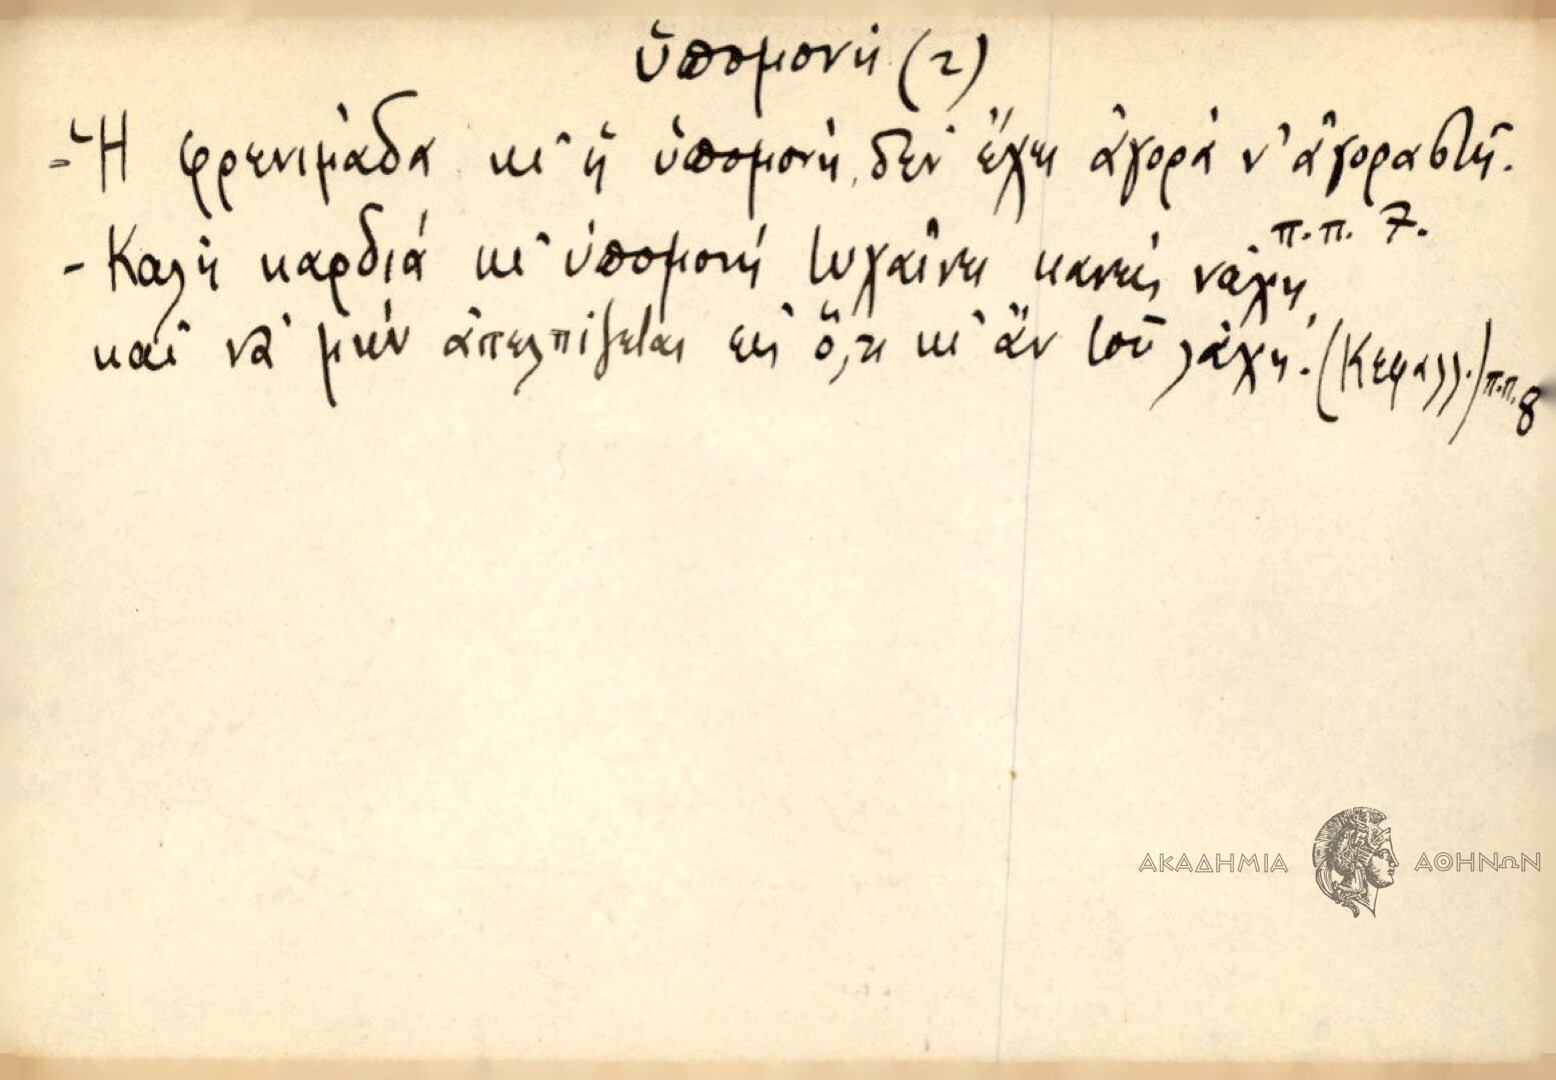 ὑπομονή (2)
- Ἡ φρενιμάδα κι' ἡ ὑπομονή, δέν ἔχει ἀγορά ν' ἀγοραστῆ.
π.π. 7.
- Καλή καρδιά κι' ὑπομονή τυχαίνει κανείς νάχη,
καί νά μήν ἀπελπίζεται εἰς ὅ,τι κι' ἄν τοῦ λάχη. (Κεφαλλ.) π.π. 8
ΑΚΑΔΗΜΙΑ ΑΘΗΝΩΝ